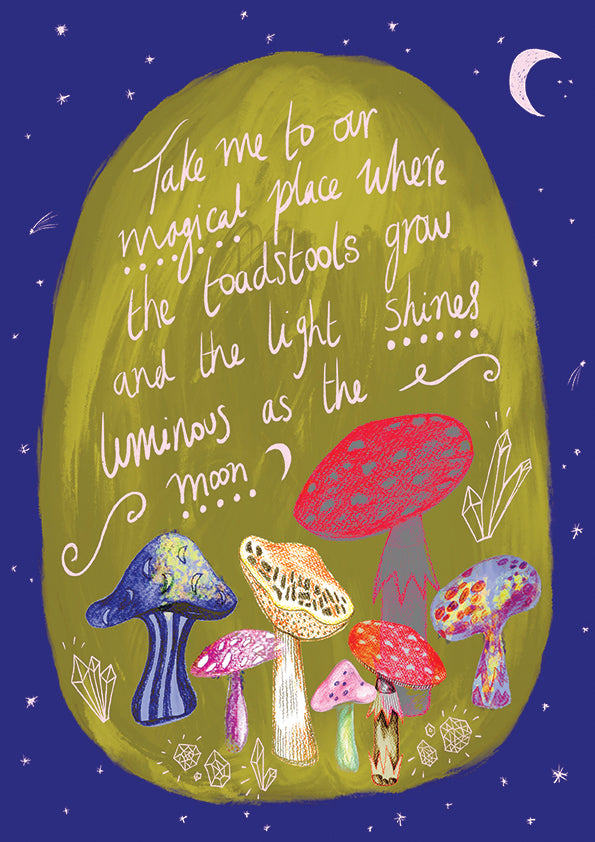 Take me to our
magical place where
the toadstools grow
and the light shines
luminous as the
moon